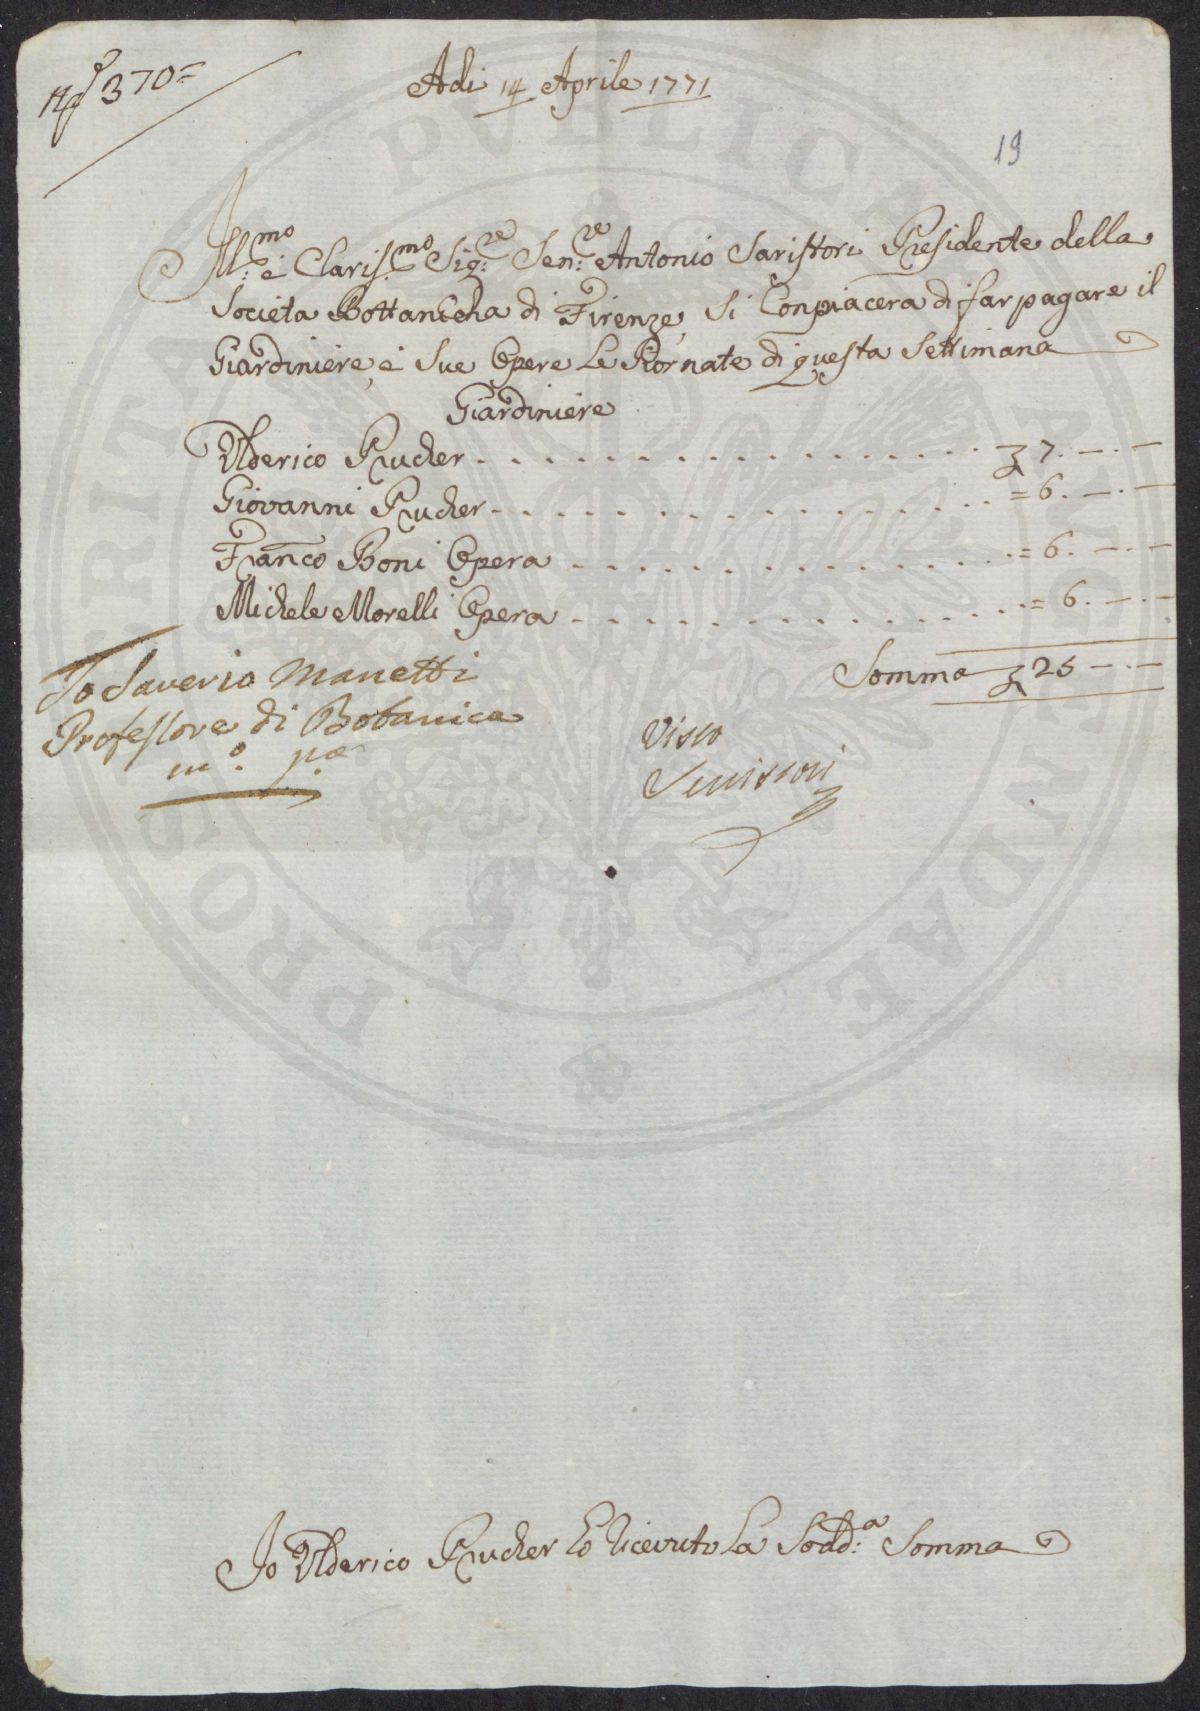 N.º 370=
Adi 14 Aprile 1771
19
Ill:mo é Claris:mo Sig:re Sen:re Antonio Saristori Presidente della
Societa Bottanicha di Firenze, Si Conpiacera di far pagare il
Giardiniere, é Sue Opere Le Giornate di questa Settimana
Giardiniere
Ulderico Prucher 7. — . —
Giovanni Prucher = 6. — . —
Franco Boni Opera = 6. — . —
Michele Morelli Opera = 6. — . —
Somma 25 — . —
Io Saverio Manetti
Professore di Botanica
m.º p.ª
Visto
Io Ulderico Prucher ho riceuto La Sodd:a Somma
PROSPERITATI PVBLICAE AVGENDAE